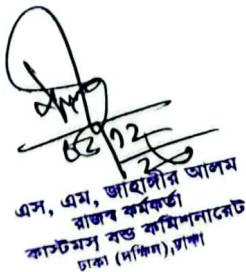 এস, এম, জাহাঙ্গীর আলম
রাজস্ব কর্মকর্তা
কাস্টমস বন্ড কমিশনারেট
ঢাকা (দক্ষিণ), ঢাকা